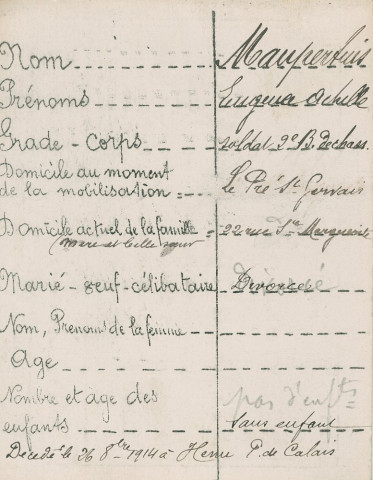 Nom Maupertuis
Prénoms Eugène Achille
Grade - corps soldat 2e B. de chass.
Domicile au moment
de la mobilisation = Le Pré St Gervais
Domicile actuel de la famille 22 rue Ste Marguerite
(mère et belle sœur
Marié - veuf - célibataire Divorcé
Nom, Prénoms de la femme
Age
Nombre et age des pas d'enfts
enfants sans enfant
Décédé le 26 8bre 1914 à Hersin P. de Calais